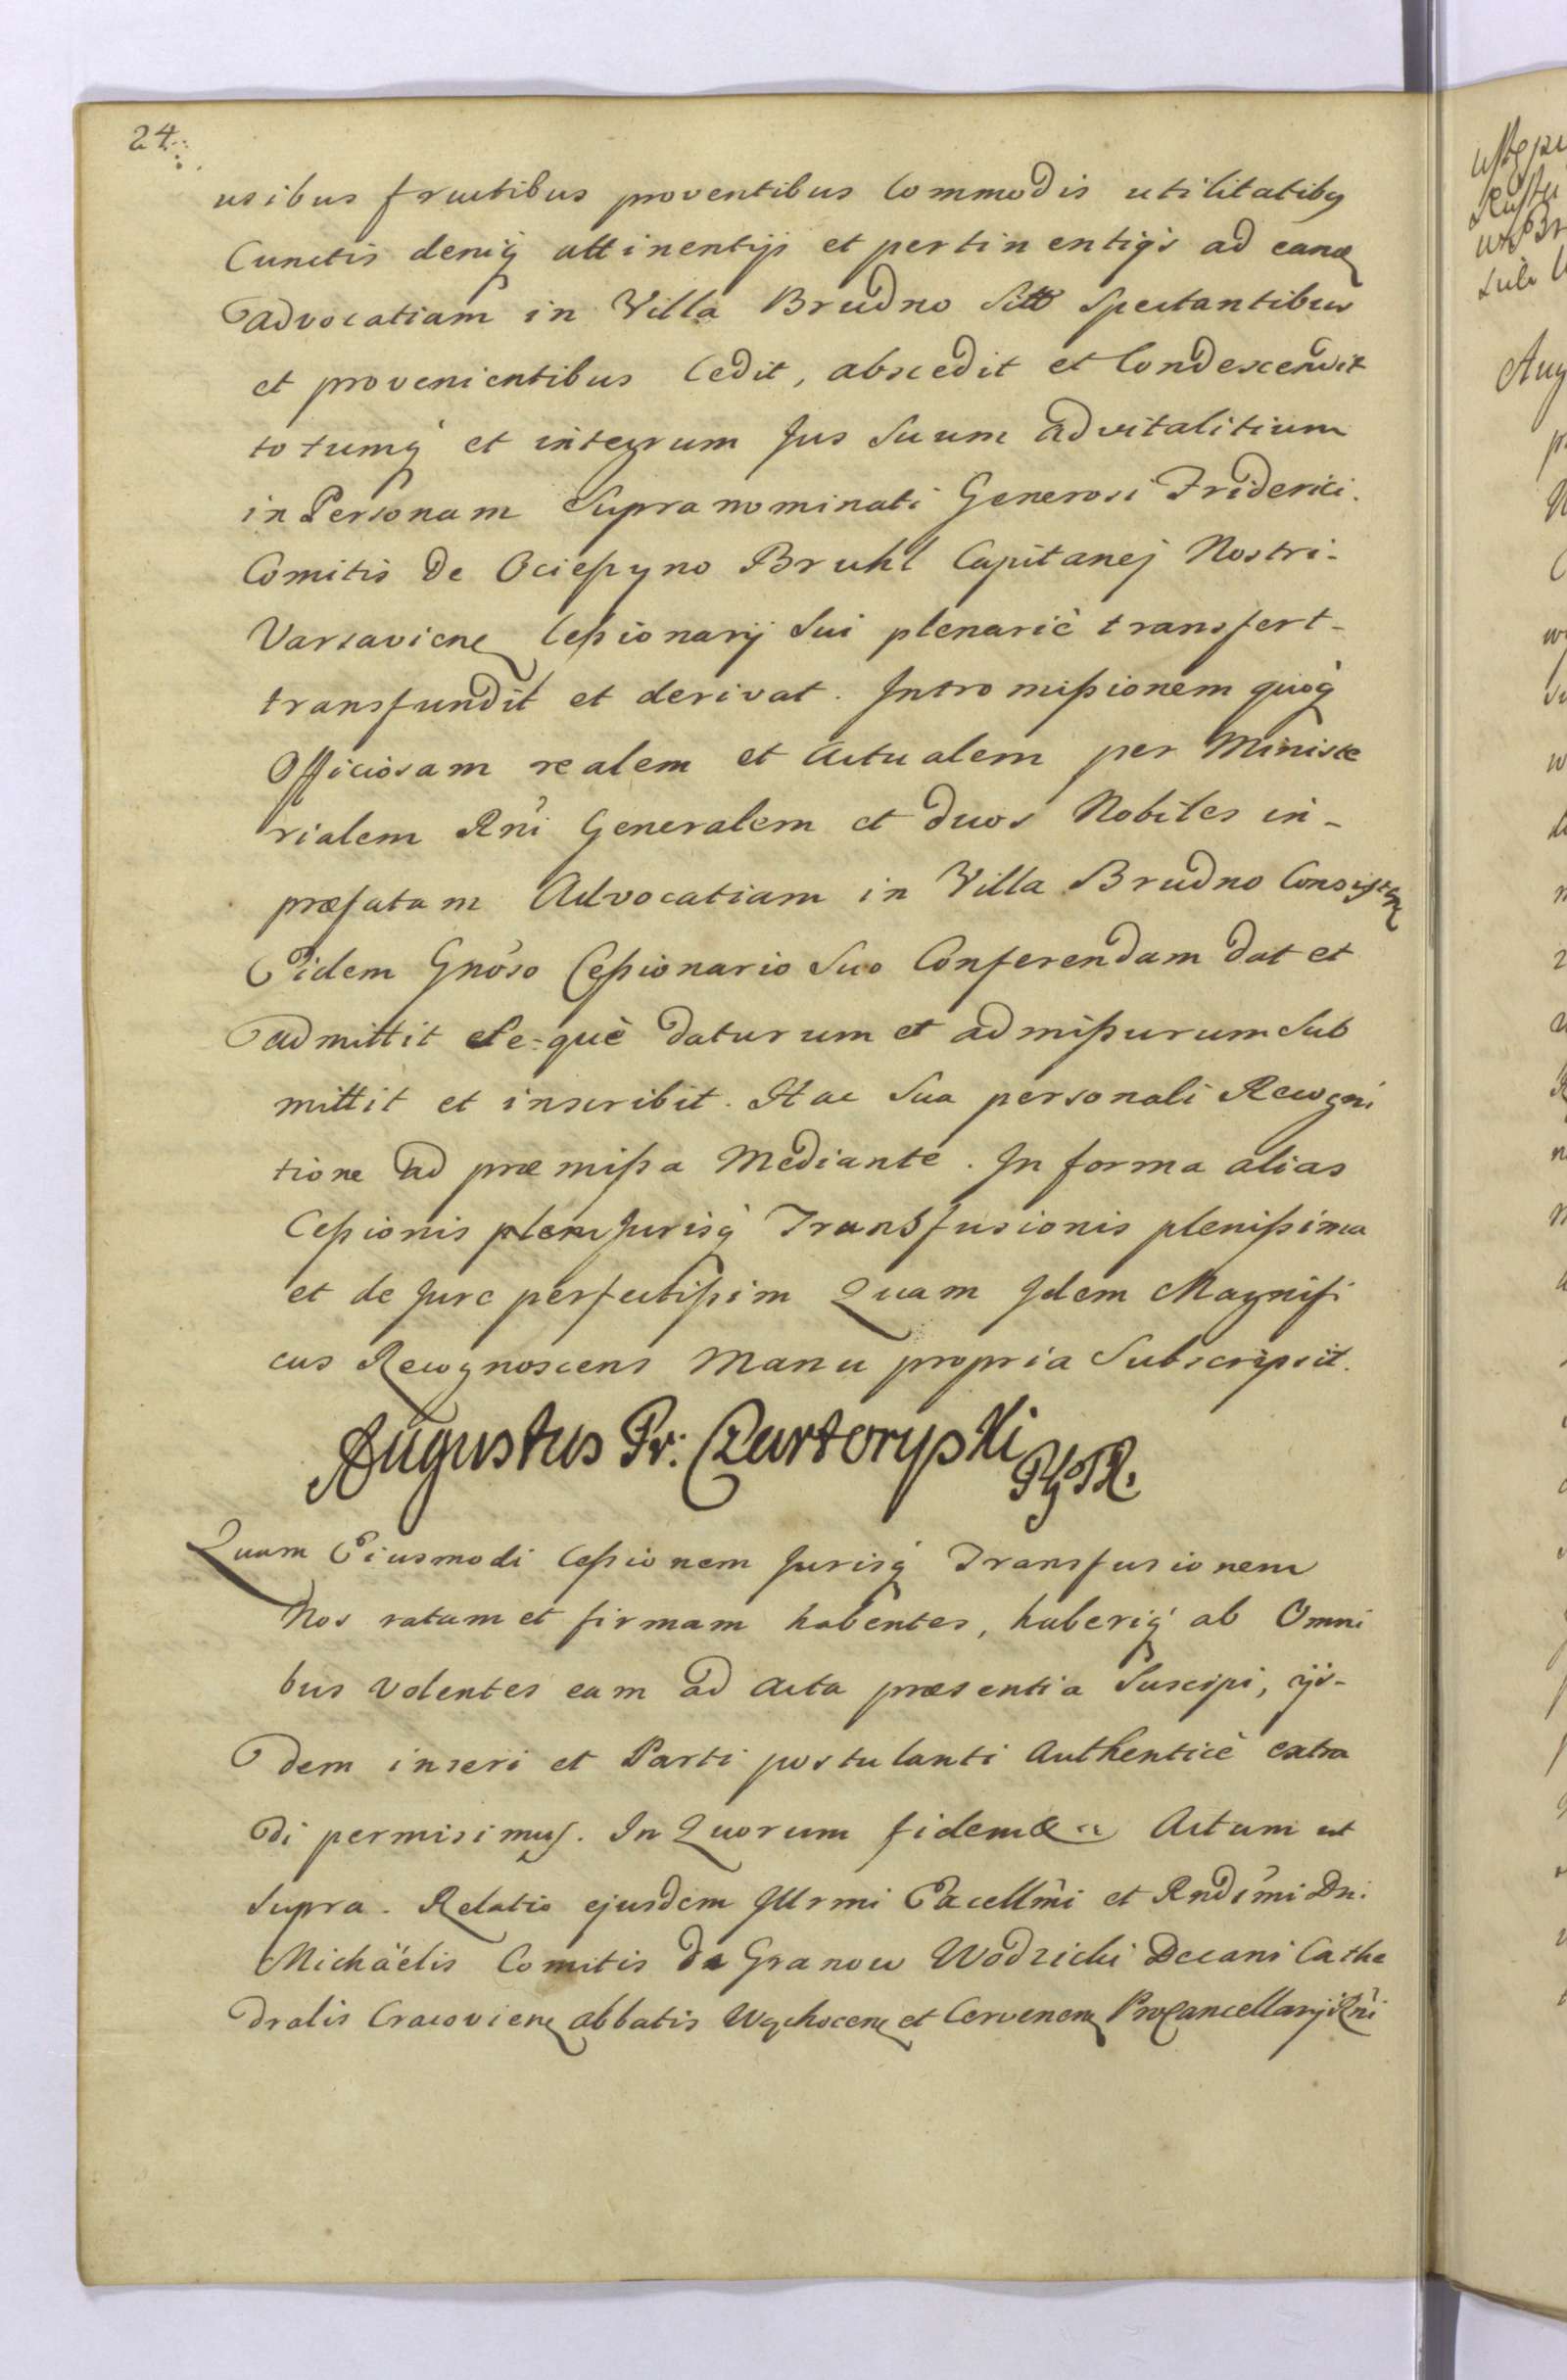 24.
usibus fructibus proventibus Commodis utilitatibq
Cunctis deniq attinentijs et pertinentijs ad eande
advocatiam in Villa Brudno Sitt Spectantibus
et provenientibus Cedit, abscedit et Condescendit
totumq et integrum Jus Suum advitalitium
in Personam Supranominati Generosi Friderici
Comitis De Ociessyno Bruhl Capitanej Nostri-
Varsaviene Cessionarij Sui plenariè transfert-
transfundit et derivat. Intromissionem quoq
Officiosam realem et Actualem per Ministe
rialem Rñi Generalem et duos Nobiles in-
præfatam Advocatiam in Villa Brudno Consisten
Eidem Gnoso Cessionario Suo Conferendam dat et
admittit Se-què daturum et admissurum Sub
mittit et inscribit. Hac Sua personali Recogni
tione ad præmissa Mediante. In forma alias
Cessionis plen Jurisq Transfusionis plenissima
et de Jure perfectissim Quam Idem Magnifi
cus Recognoscens Manu propria Subscripsit.
Augustus Pr: Czartoryski
Quam Eiusmodi Cessionem Jurisq Transfusionem
Nos ratam et firmam habentes, haberiq ab Omni
bus volentes eam ad acta præsentia Suscipi, ijs-
dem inseri et Parti postulanti Authenticè extra
di permisimus. In Quorum fidem & Actum ut
Supra. Relatio ejusdem Illrmi Excellmi et Rndsmi Dni
Michäelis Comitis de Granow Wodzicki Decani Cathe
dralis Cracoviene abbatis Wąchocene et Cervenene ProCancellarij Rñi